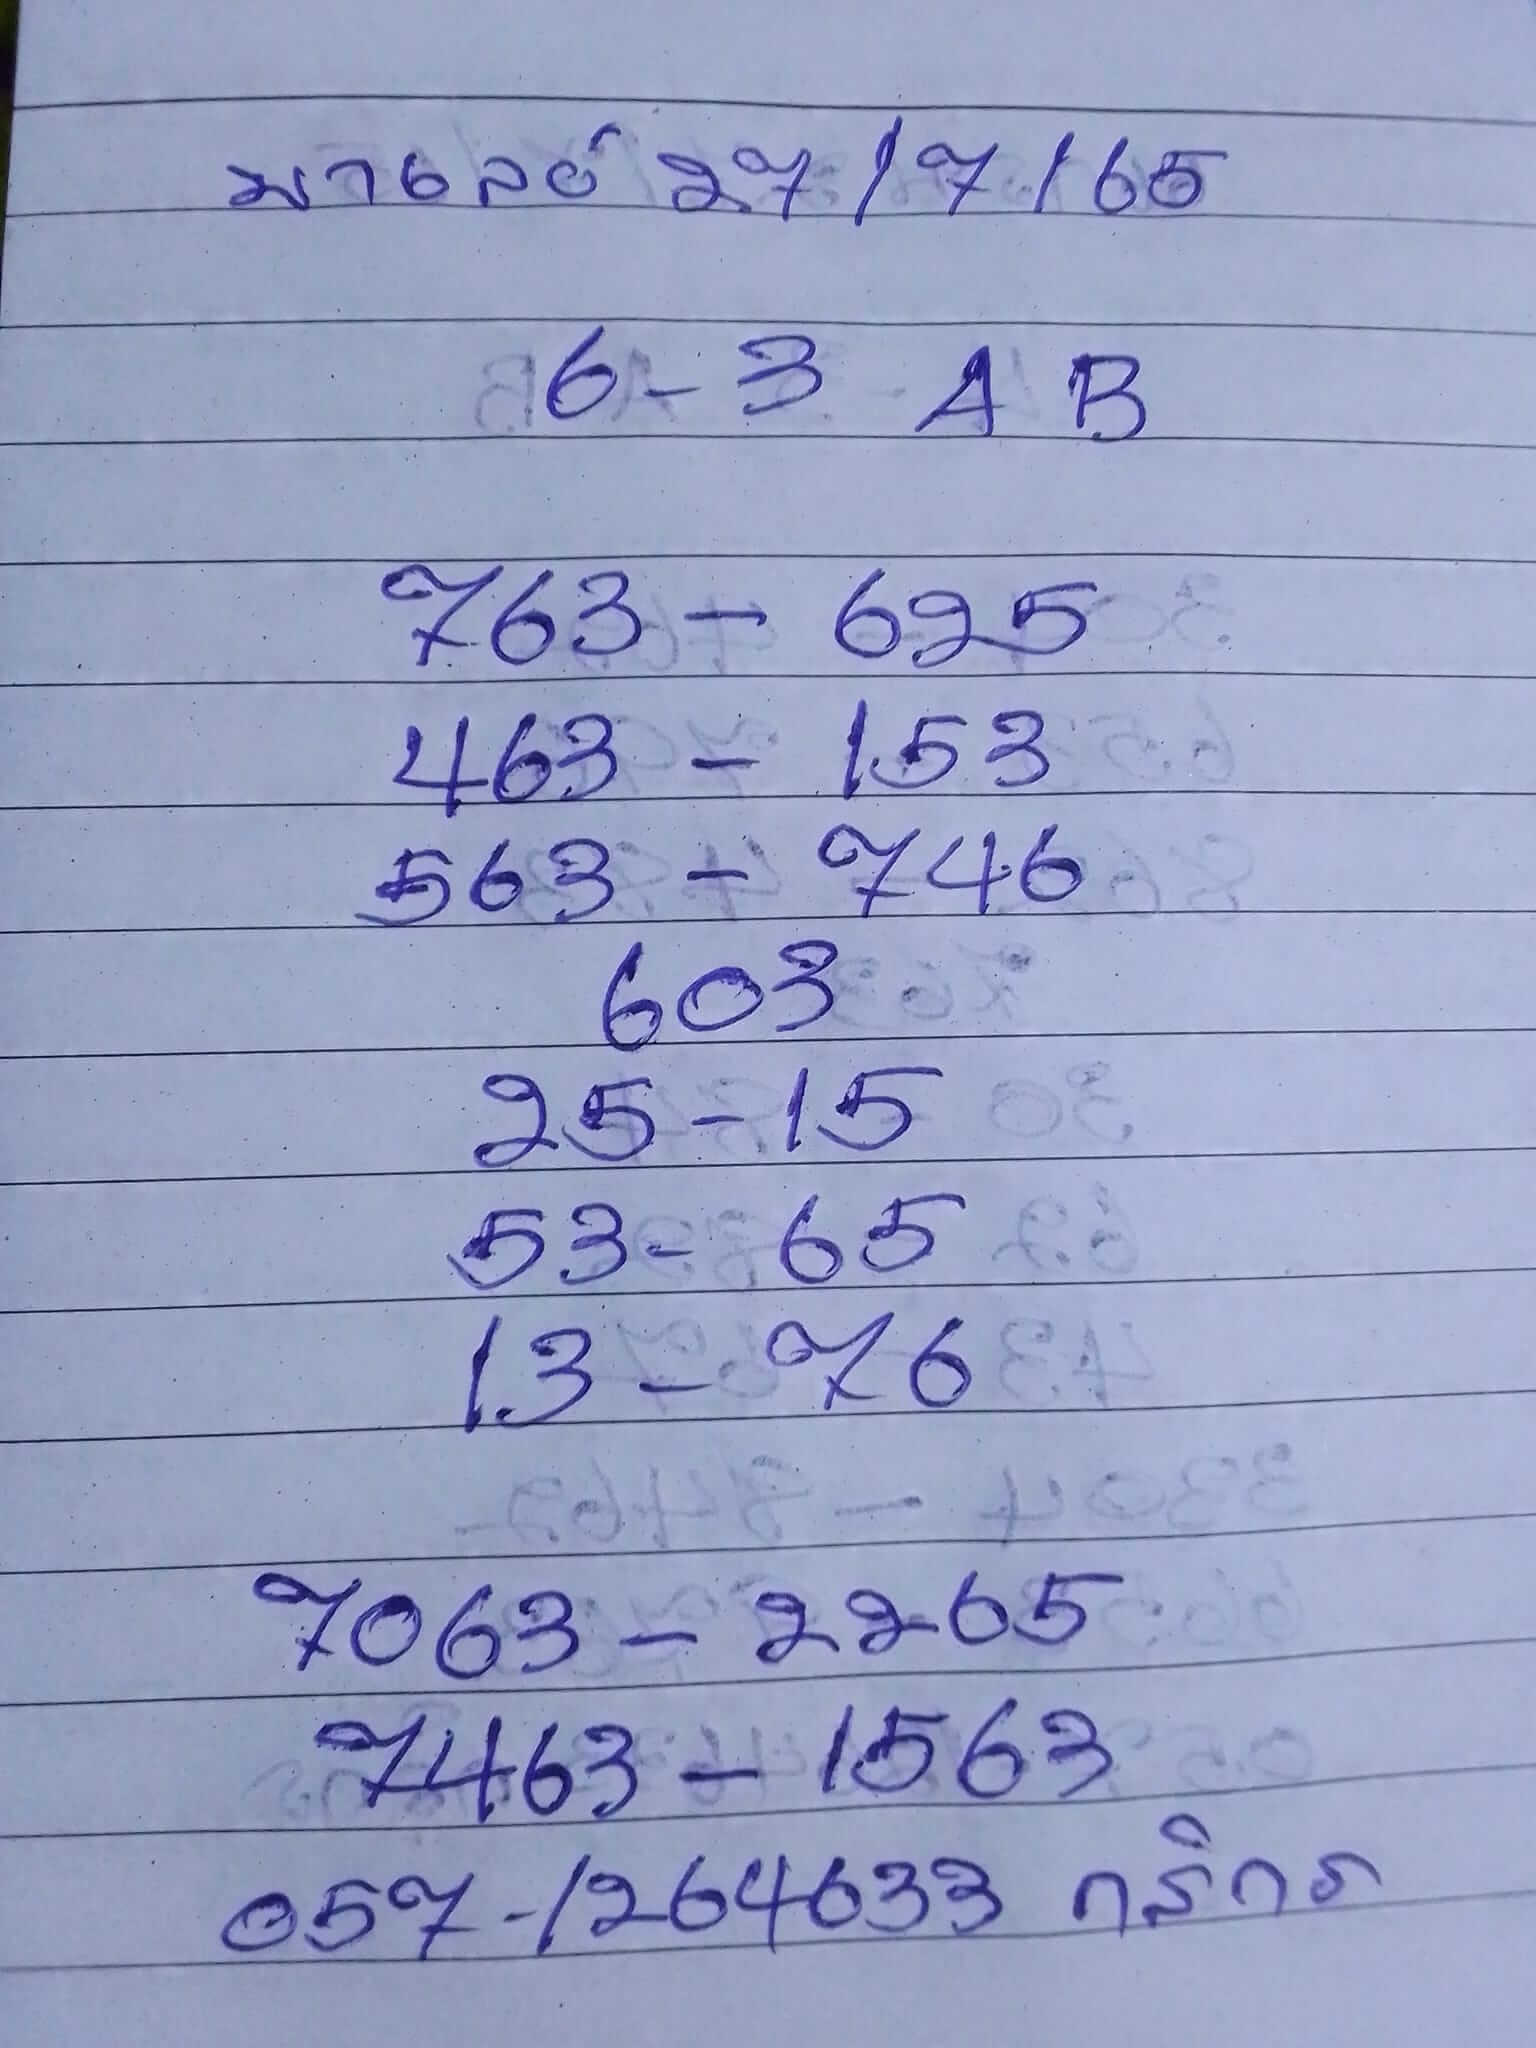 มาเลย์ 27/7/65
6-3 A B
763 - 625
463 - 153
563 - 746
603
25-15
53-65
13-76
7063-2265
7463-1563
057-1264633 กสิกร